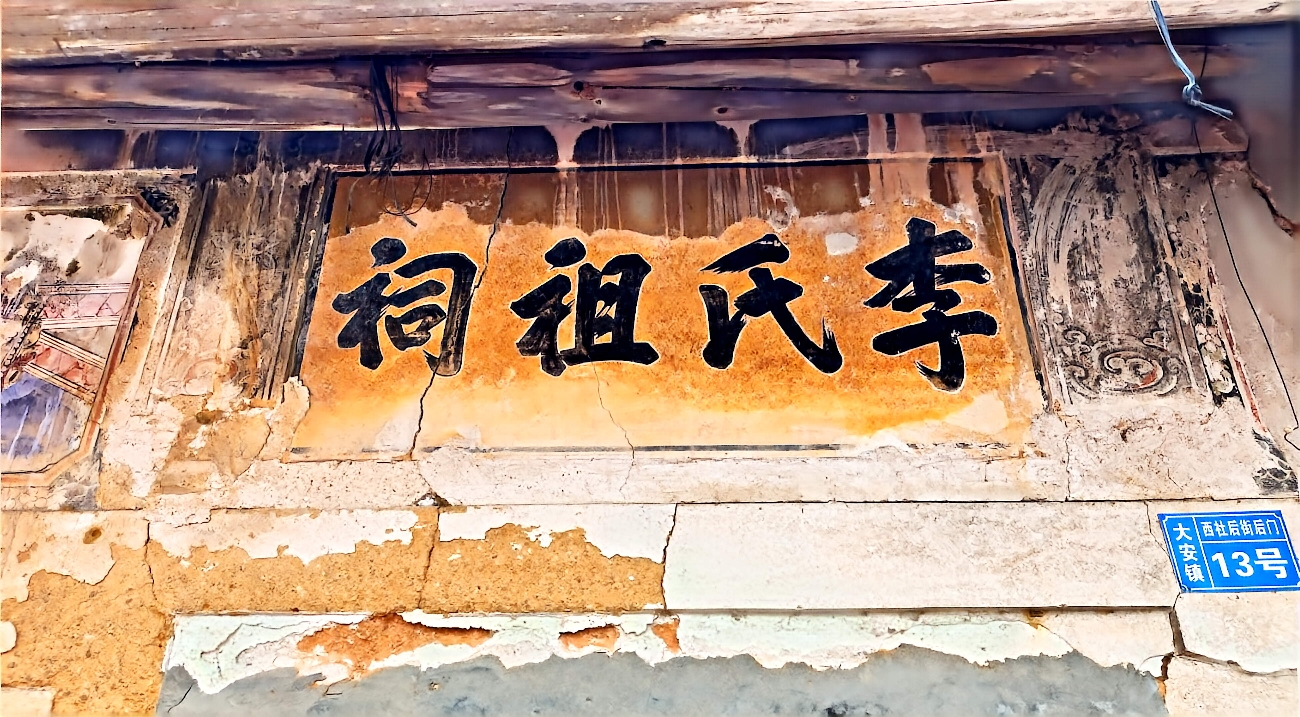 李氏祖祠
大安镇
西社后街后门
13号